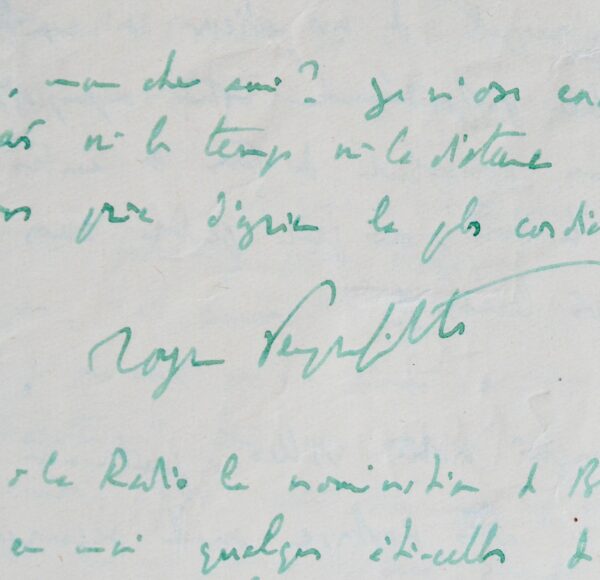 , mon cher ami ? Je n'ose en
ni le temps ni la distance
prie d'agréer le plus cordia
Roger Peyrefitte
la Radio la nomination d B
en moi quelques étincelles d